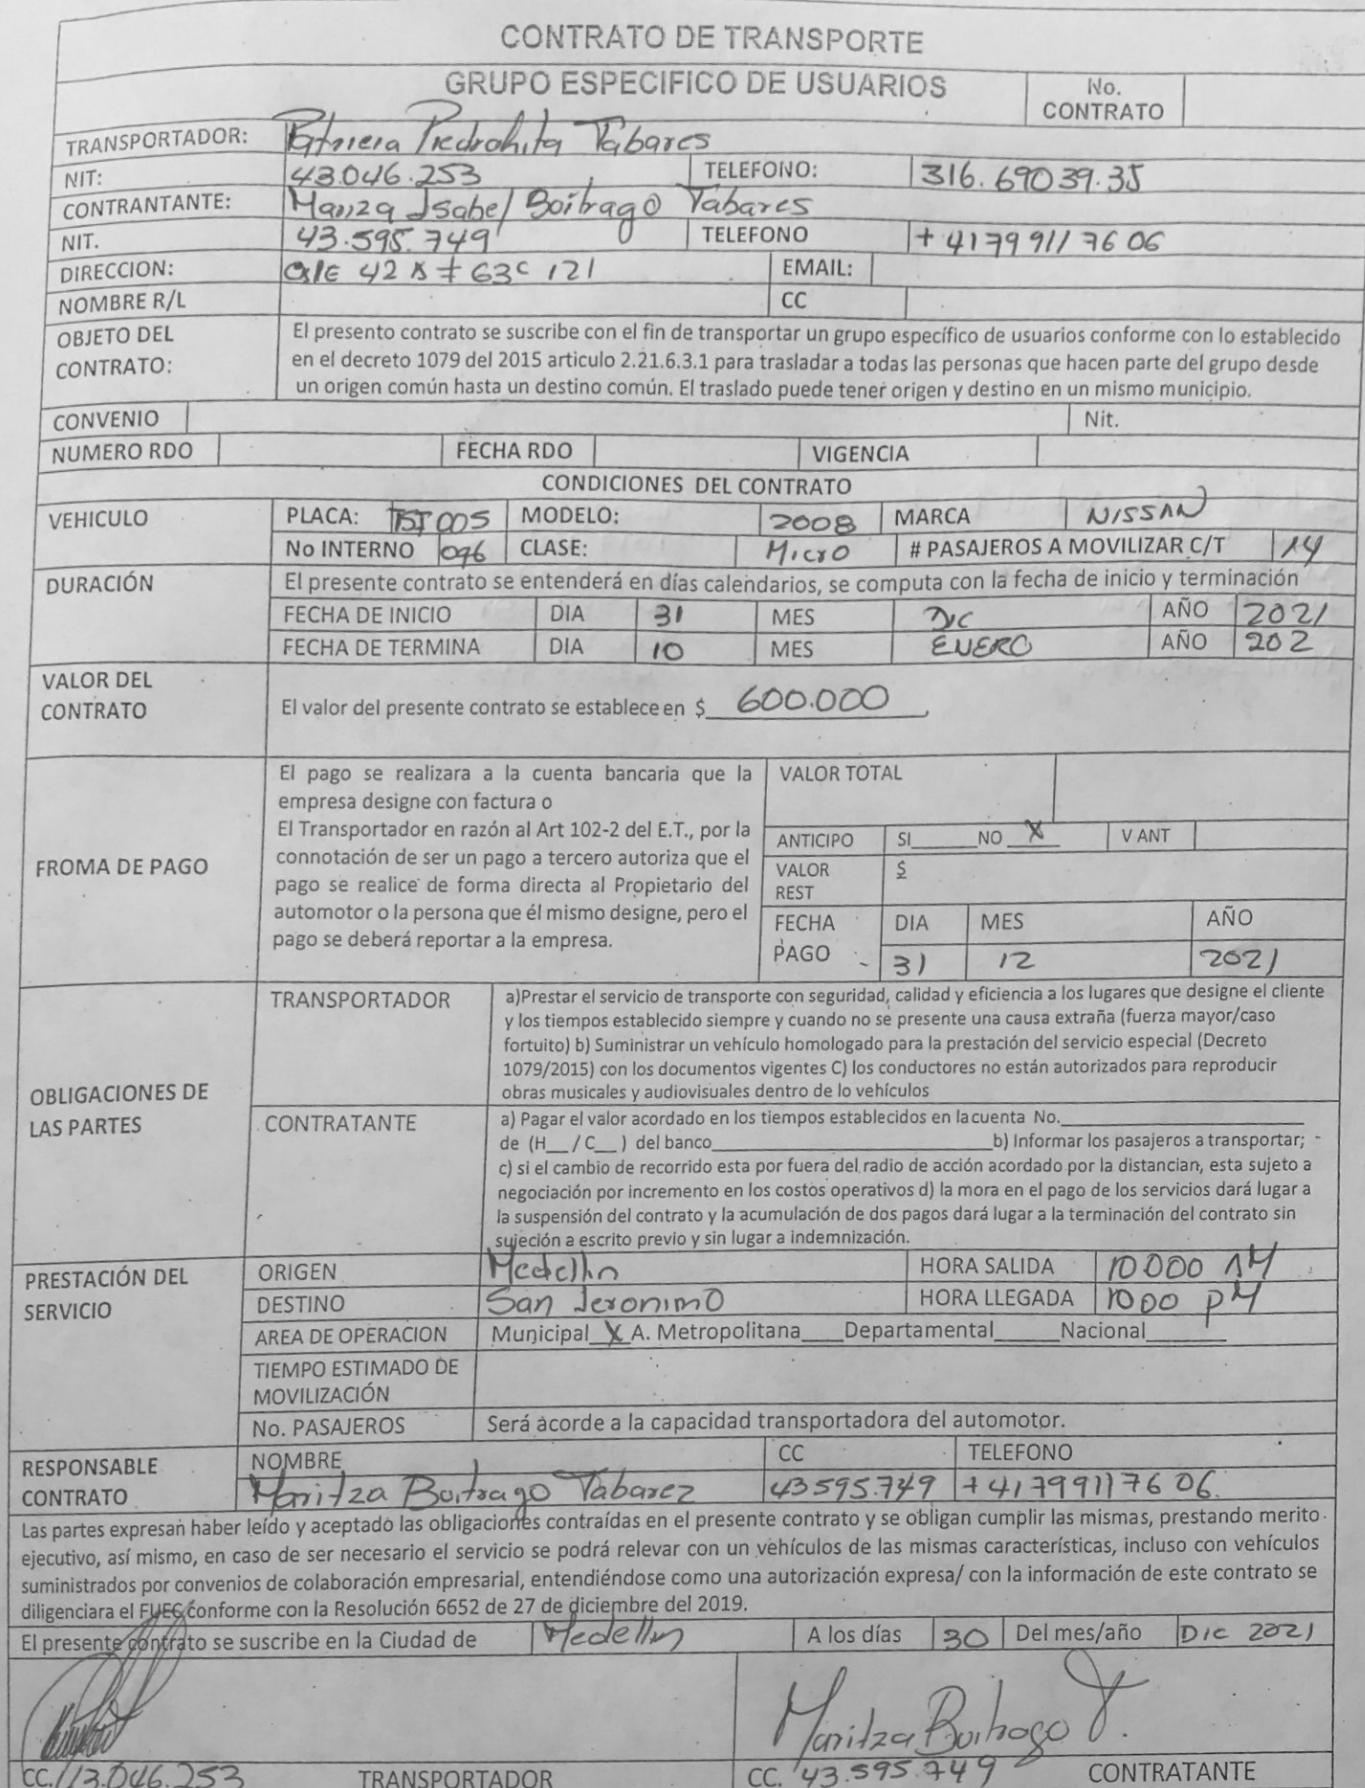 CONTRATO DE TRANSPORTE
GRUPO ESPECIFICO DE USUARIOS No. CONTRATO
TRANSPORTADOR: Patricia Piedrahita Tabares
NIT: 43.046.253 TELEFONO: 316.690 39.35
CONTRANTANTE: Isabel Boitrago Tabares
NIT. 43.595.749 TELEFONO +41 79 911 76 06
DIRECCION: 42 # 63c 121 EMAIL:
NOMBRE R/L CC
OBJETO DEL CONTRATO: El presento contrato se suscribe con el fin de transportar un grupo específico de usuarios conforme con lo establecido
en el decreto 1079 del 2015 articulo 2.21.6.3.1 para trasladar a todas las personas que hacen parte del grupo desde
un origen común hasta un destino común. El traslado puede tener origen y destino en un mismo municipio.
CONVENIO Nit.
NUMERO RDO FECHA RDO VIGENCIA
CONDICIONES DEL CONTRATO
VEHICULO PLACA: TST 005 MODELO: 2008 MARCA NISSAN
No INTERNO 096 CLASE: Micro # PASAJEROS A MOVILIZAR C/T 14
DURACIÓN El presente contrato se entenderá en días calendarios, se computa con la fecha de inicio y terminación
FECHA DE INICIO DIA 31 MES DIC AÑO 2021
FECHA DE TERMINA DIA 10 MES ENERO AÑO 202
VALOR DEL CONTRATO El valor del presente contrato se establece en $ 600.000
FROMA DE PAGO
El pago se realizara a la cuenta bancaria que la
empresa designe con factura o
El Transportador en razón al Art 102-2 del E.T., por la
connotación de ser un pago a tercero autoriza que el
pago se realice de forma directa al Propietario del
automotor o la persona que él mismo designe, pero el
pago se deberá reportar a la empresa.
VALOR TOTAL
ANTICIPO SI____ NO X V ANT
VALOR REST $
FECHA PAGO DIA MES AÑO
31 12 2021
OBLIGACIONES DE LAS PARTES
TRANSPORTADOR a)Prestar el servicio de transporte con seguridad, calidad y eficiencia a los lugares que designe el cliente
y los tiempos establecido siempre y cuando no se presente una causa extraña (fuerza mayor/caso
fortuito) b) Suministrar un vehículo homologado para la prestación del servicio especial (Decreto
1079/2015) con los documentos vigentes C) los conductores no están autorizados para reproducir
obras musicales y audiovisuales dentro de lo vehículos
CONTRATANTE a) Pagar el valor acordado en los tiempos establecidos en la cuenta No.____
de (H__/C__) del banco____b) Informar los pasajeros a transportar;
c) si el cambio de recorrido esta por fuera del radio de acción acordado por la distancian, esta sujeto a
negociación por incremento en los costos operativos d) la mora en el pago de los servicios dará lugar a
la suspensión del contrato y la acumulación de dos pagos dará lugar a la terminación del contrato sin
sujeción a escrito previo y sin lugar a indemnización.
PRESTACIÓN DEL SERVICIO
ORIGEN Medellin HORA SALIDA 10000 AM
DESTINO San Jeronimo HORA LLEGADA 1000 PM
AREA DE OPERACION Municipal X A. Metropolitana____Departamental____Nacional____
TIEMPO ESTIMADO DE MOVILIZACIÓN
No. PASAJEROS Será acorde a la capacidad transportadora del automotor.
RESPONSABLE CONTRATO
NOMBRE CC TELEFONO
Maritza Boitrago Tabarez 43595.749 +41 79911 76 06.
Las partes expresan haber leído y aceptado las obligaciones contraídas en el presente contrato y se obligan cumplir las mismas, prestando merito
ejecutivo, así mismo, en caso de ser necesario el servicio se podrá relevar con un vehículos de las mismas características, incluso con vehículos
suministrados por convenios de colaboración empresarial, entendiéndose como una autorización expresa/ con la información de este contrato se
diligenciara el FUEC conforme con la Resolución 6652 de 27 de diciembre del 2019.
El presente contrato se suscribe en la Ciudad de Medellin A los días 30 Del mes/año Dic 2021
Maritza Buitrago T.
CC. 43.046.253 TRANSPORTADOR CC. 43.595.749 CONTRATANTE